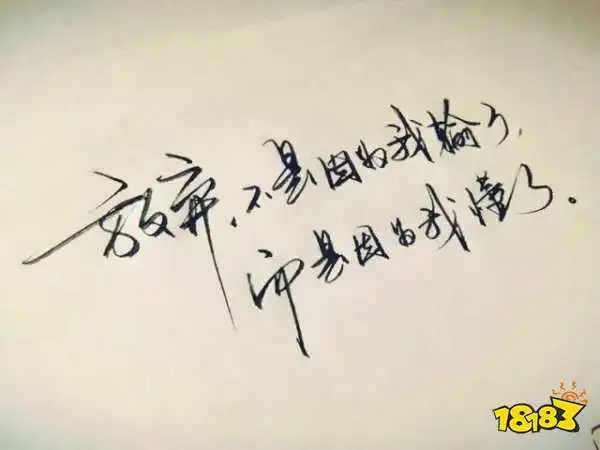 放弃,不是因为我输了,
而是因为我懂了。
18183